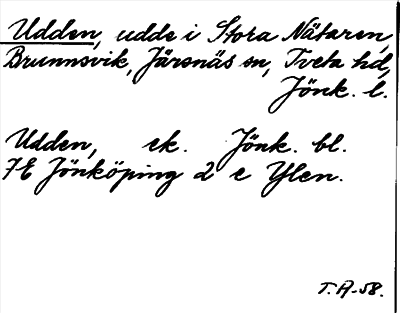 Udden, udde i Stora Nätaren,
Brunnsvik, Järsnäs sn, Tveta hd,
Jönk. l.
Udden, ek. Jönk. bl.
7E Jönköping 2 e Ylen.
T. A-58.